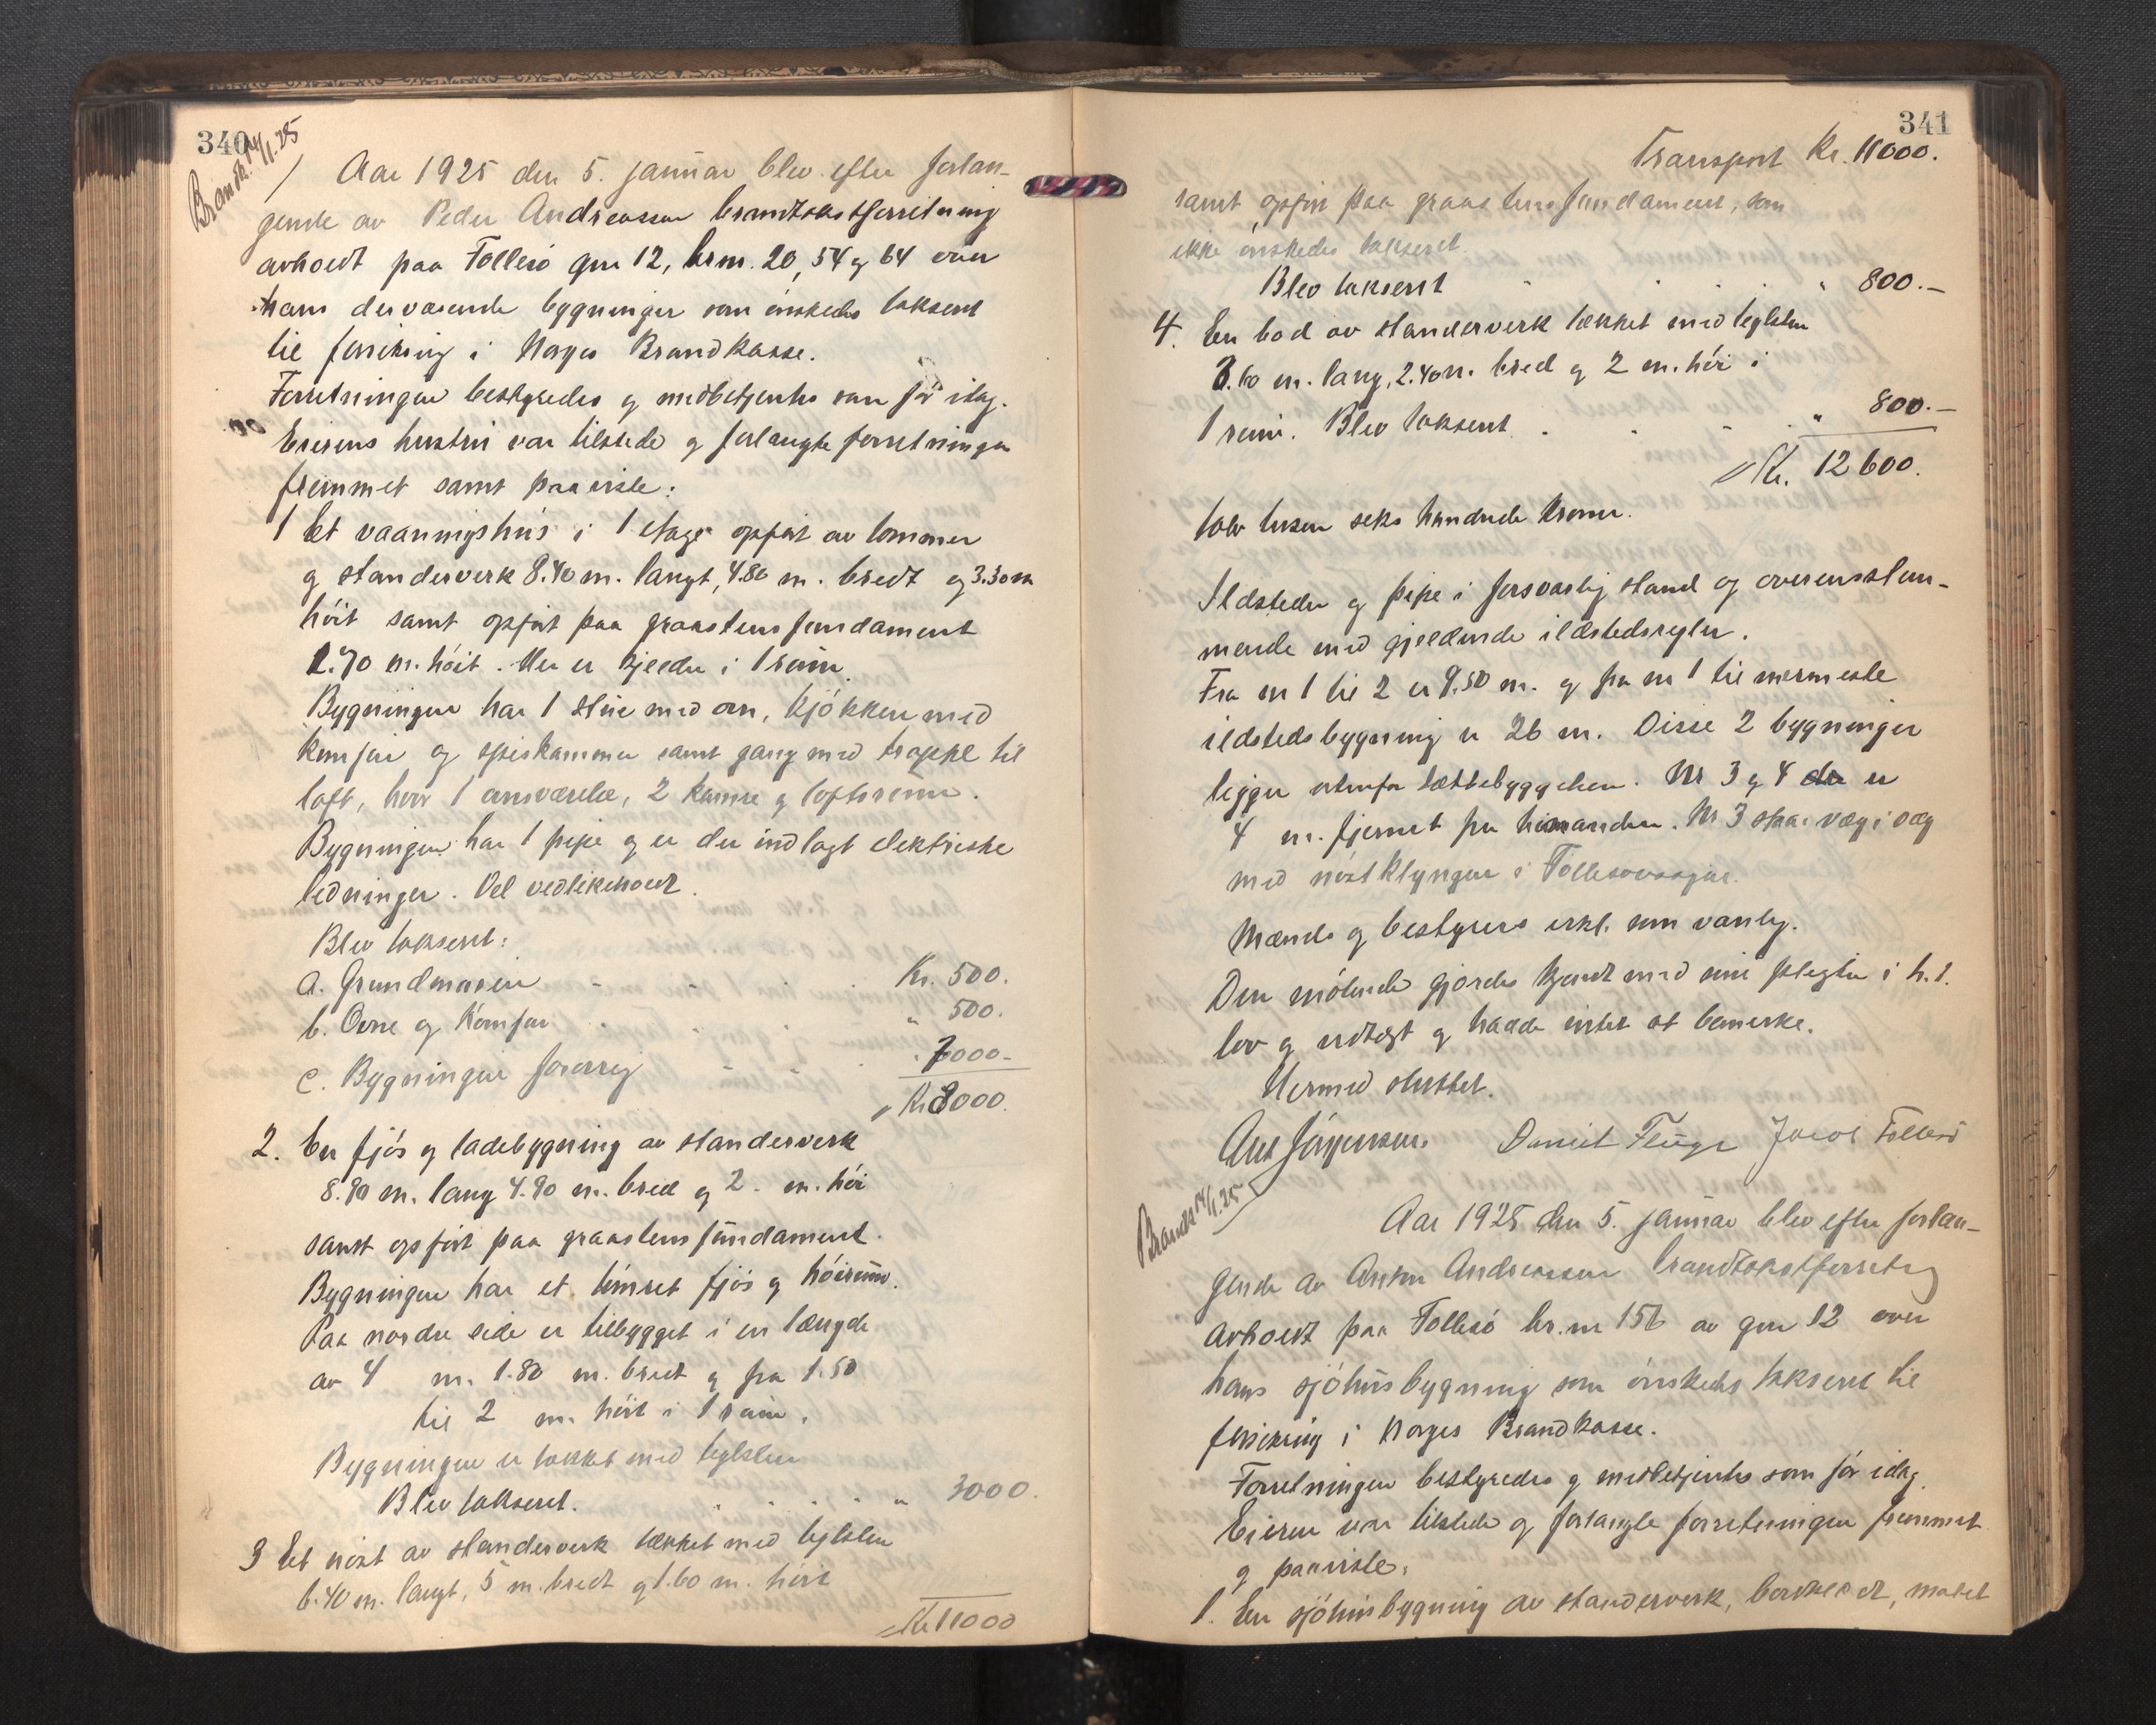 340
Brandt. 14/1.25
Aar 1925 den 5. januar blev efter forlan-
gende av Peder Andreassen brandtakstforretning
avholdt paa Follesö gnr 12, brnr. 20, 54 og 64 over
hans derværende bygninger som önskedes taksert
til forsikring i Norges Brandkasse.
Forretningen bestyredes og medbetjentes som för idag.
Eierens hustru var tilstede og forlangte forretningen
fremmet samt paaviste:
1 Et vaaningshus i 1 etage opfört av tömmer
og standerverk 8.40 m. langt, 4.80 m. bredt og 3.30 m
höit samt opfört paa graastens fundament
1.70 m. höit. Der er kjelder i 1 rum.
Bygningen har 1 stue med ovn, kjökken med
komfur og spiskammer samt gang med trappe til
loft, hvor 1 ovnsværelse, 2 kamre og loftsrum.
Bygningen har 1 pipe og er der indlagt elektriske
ledninger. Vel vedlikeholdt.
Blev taksert:
a. Grundmuren Kr. 500.
b. Ovne og komfur " 500.
c. Bygningen forövrig " 7000-
Kr. 8000.
2. En fjös og ladebygning av standerverk
8.90 m. lang 4.90 m. bred og 2 m. höi
samt opfört paa graastens fundament.
Bygningen har et tömret fjös og höirum.
Paa nordre side er tilbygget i en længde
av 4 m. 1.80 m. bredt og fra 1.50
til 2 m. höit i 1 rum.
Bygningen er tækket med teglsten
Blev taksert. " 3000.
3 Et nöst av standerverk tækket med teglsten
6.40 m. langt, 5 m. bredt og 1.60 m. höit
Kr 11000
341
Transport Kr. 11000.
samt opfört paa graastens fundament, som
ikke önskedes taksert.
Blev taksert " 800.-
4. En bod av standerverk tækket med teglsten
3.60 m. lang, 2.40 m. bred og 2 m. höi i
1 rum. Blev taksert " 800.-
Kr. 12600.
tolv tusen seks hundrede kroner.
Ildsteder og pipe i forsvarlig stand og overensstem-
mende med gjeldende ildstedsregler.
Fra nr 1 til 2 er 9.50 m. og fra nr 1 til nærmeste
ildstedsbygning er 26 m. Disse 2 bygninger
ligger utenfor tættebyggelsen. Nr 3 og 4 er
4 m. fjernet fra hinanden. Nr 3 staar væg i væg
med nöstklyngen i Follesövaagen.
Mænds og bestyrers erkl. som vanlig.
Den mötende gjordes kjendt med sine pligter i h.t.
lov og vedtægt og hadde intet at bemerke.
Hermed sluttet.
Ant Jörgensen. Daniel Fluge Jacob Follesö
Brandt 14/1.25
Aar 1925 den 5. januar blev efter forlan-
gende av Anton Andreassen brandtakstforretning
avholdt paa Follesö br.nr 156 av gnr 12 over
hans sjöhusbygning som önskedes taksert til
forsikring i Norges Brandkasse.
Forretningen bestyredes og medbetjentes som för idag.
Eieren var tilstede og forlangte forretningen fremmet
og paaviste:
1. En sjöhusbygning av standerverk, bordklædt, malet